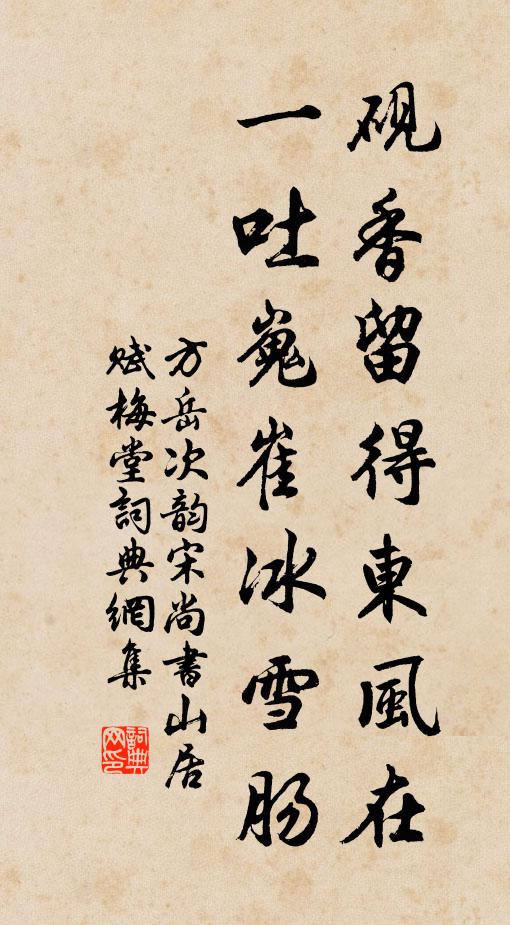 硯香留得東風在
一吐嵬崔冰雪肠
方岳次韵宋尚書山居
賦梅堂詞典網集
詞典网印